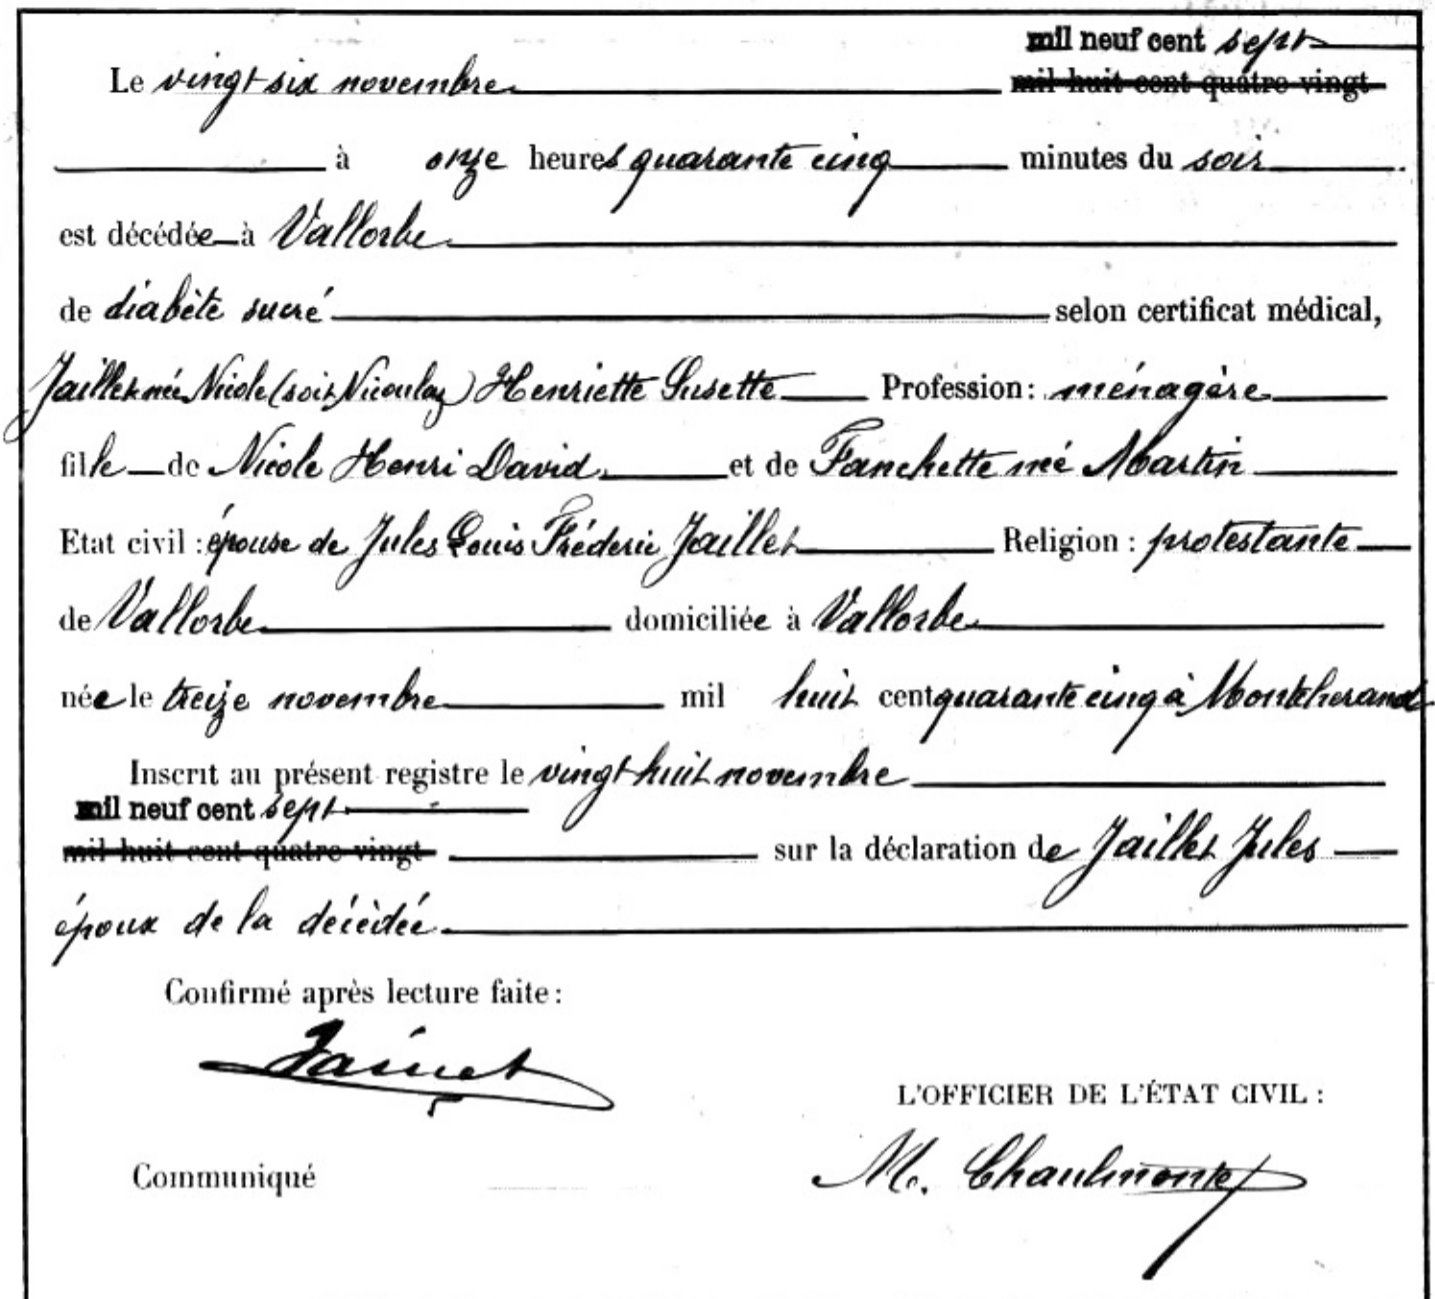 mil neuf cent sept
Le vingt six novembre mil huit cent quatre vingt
à onze heures quarante cinq minutes du soir
est décédée à Vallorbe
de diabète sucré selon certificat médical,
Jaillet née Nicole (soit Nicoulaz) Henriette Susette Profession : ménagère
fille de Nicole Henri David et de Fanchette née Martin
Etat civil : épouse de Jules Louis Fréderic Jaillet Religion : protestante
de Vallorbe domiciliée à Vallorbe
née le treize novembre mil huit cent quarante cinq à Montcherand
Inscrit au présent registre le vingt huit novembre
mil neuf cent sept
mil huit cent quatre vingt sur la déclaration de Jaillet Jules
époux de la décèdée
Confirmé après lecture faite :
L'OFFICIER DE L'ÉTAT CIVIL :
Communiqué M.